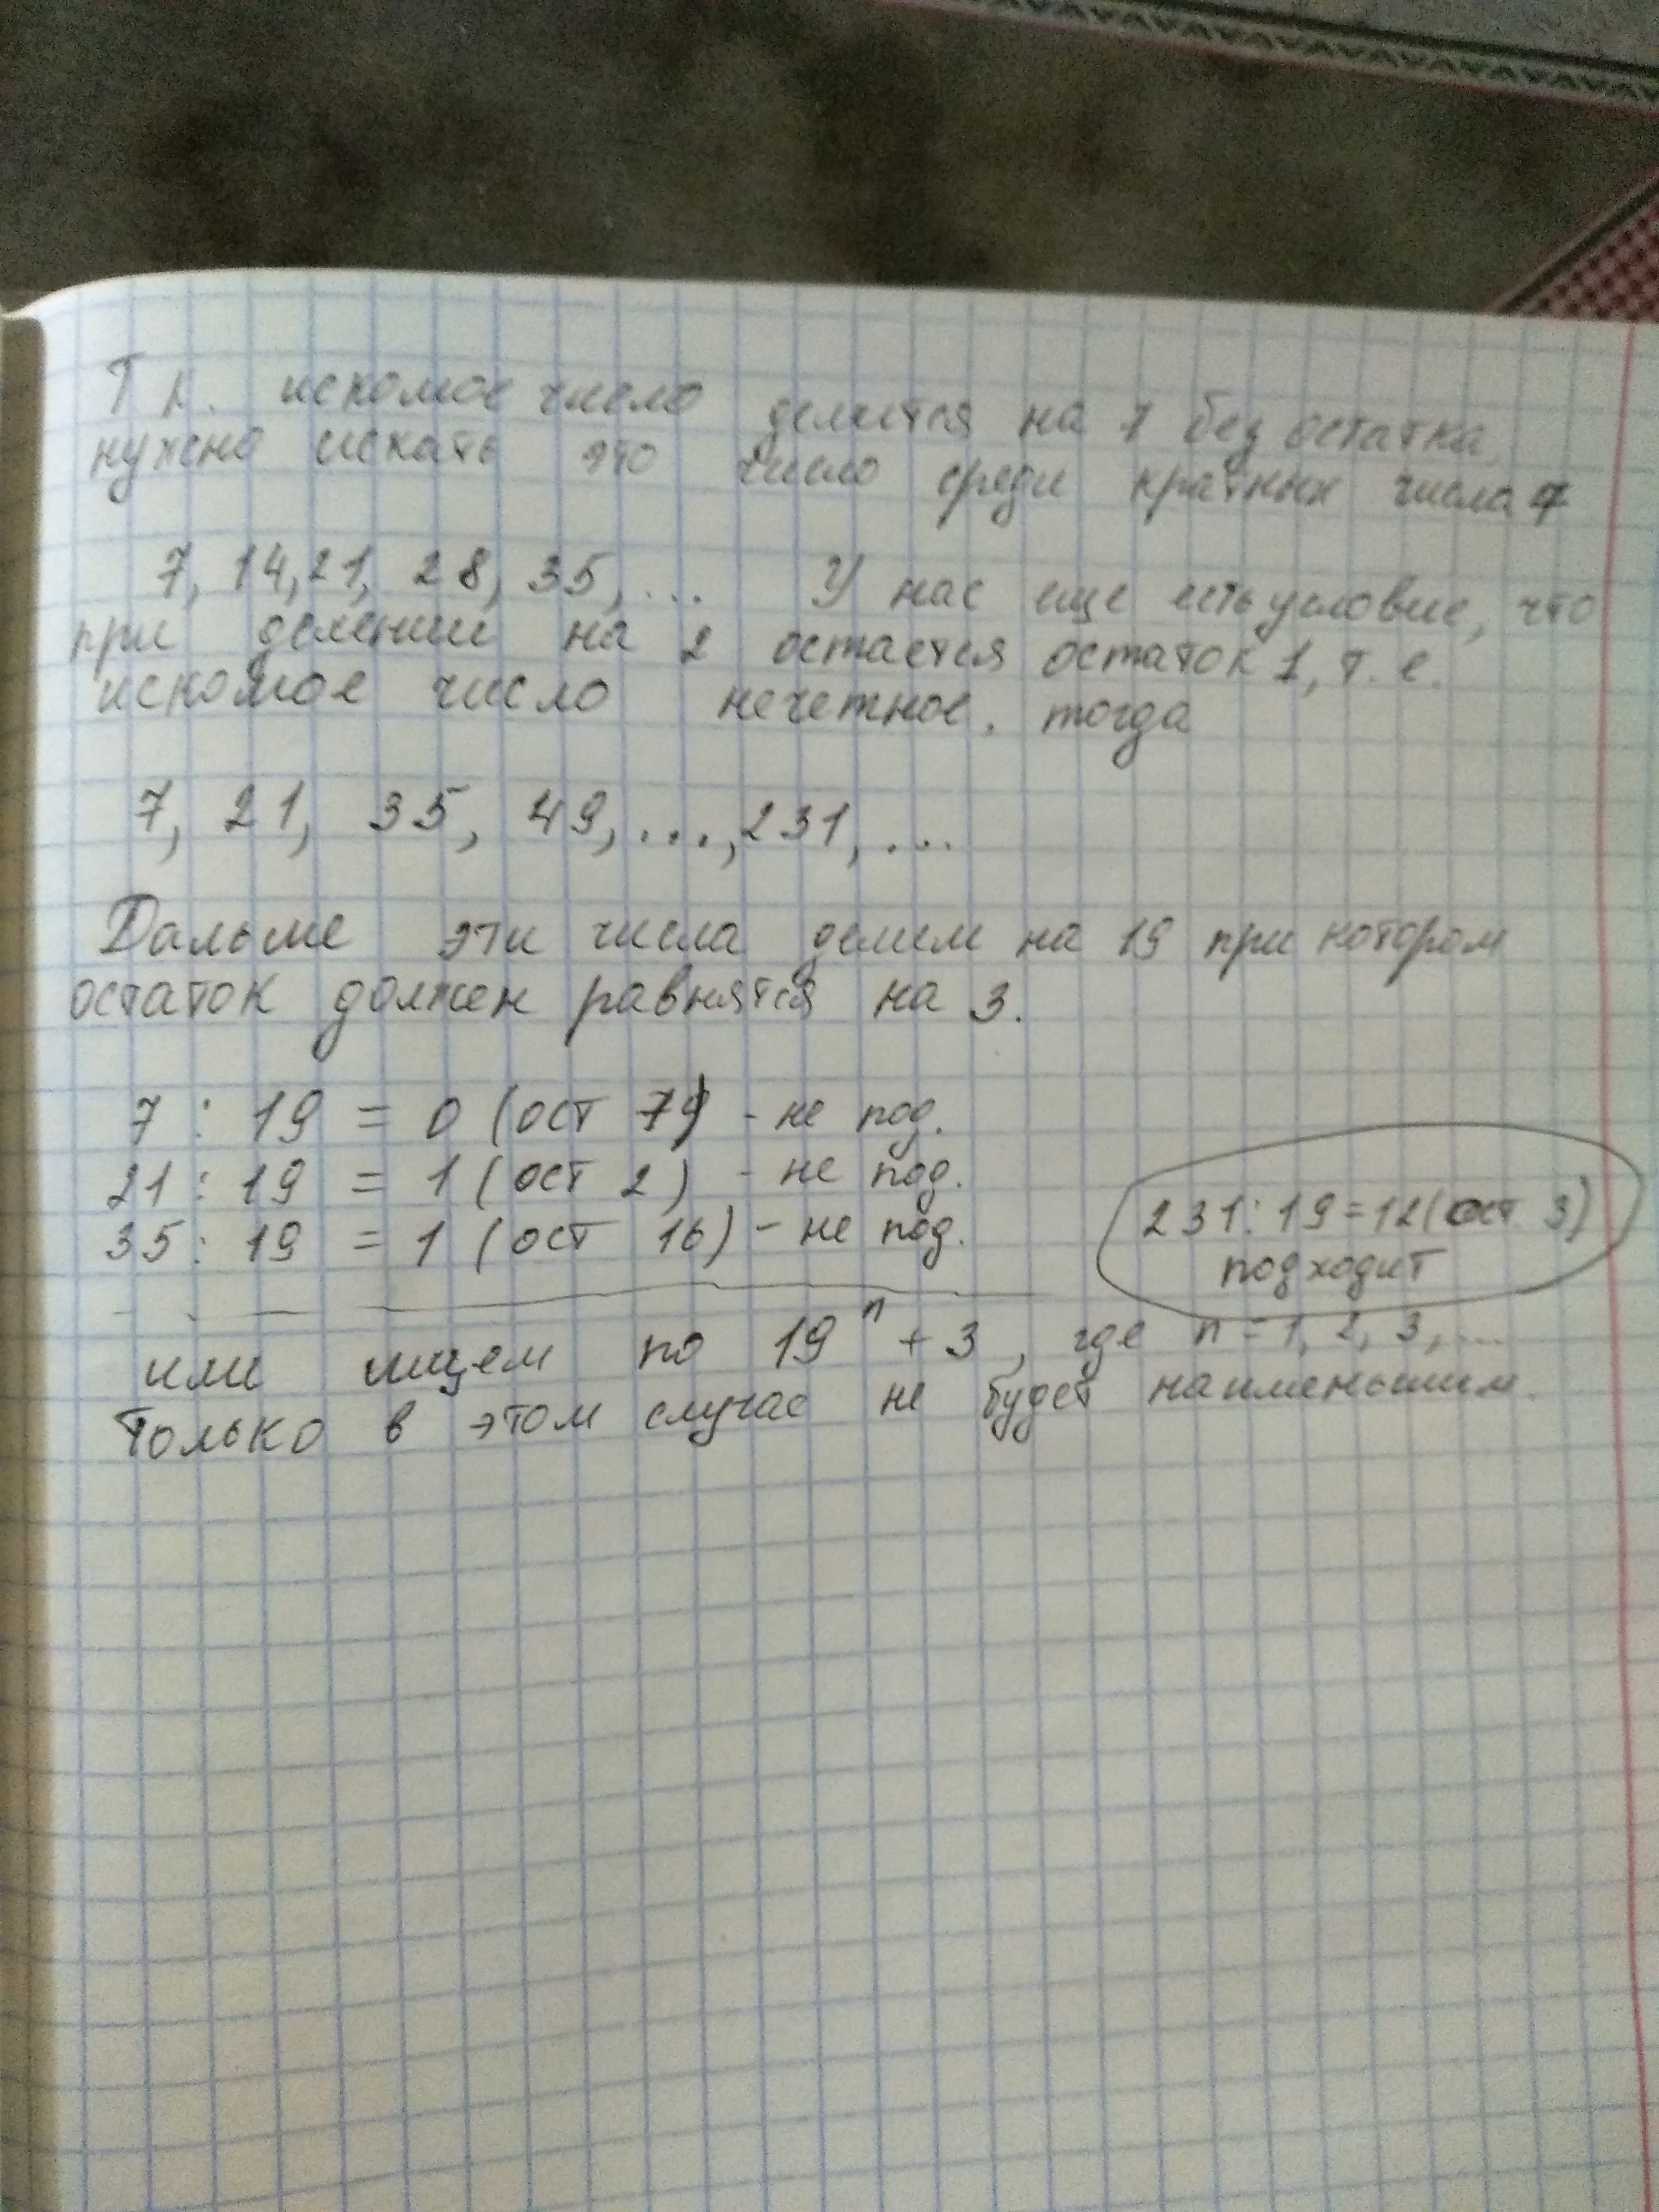 Т к. искомое число делится на 7 без остатка
нужно искать это число среди кратных числа 7
7, 14, 21, 28, 35, ... У нас еще есть условие, что
при делении на 2 остается остаток 1, т. е.
искомое число нечетное. тогда
7, 21, 35, 49, ..., 231, ...
Дальше эти числа делим на 19 при котором
остаток должен равнятся на 3.
7 : 19 = 0 (ост 7) - не под.
21 : 19 = 1 (ост 2) - не под.
35 : 19 = 1 (ост 16) - не под.
231 : 19 = 12 (ост. 3)
подходит
или ищем по 19^n + 3, где n = 1, 2, 3, ...
только в этом случае не будет наименьшим.